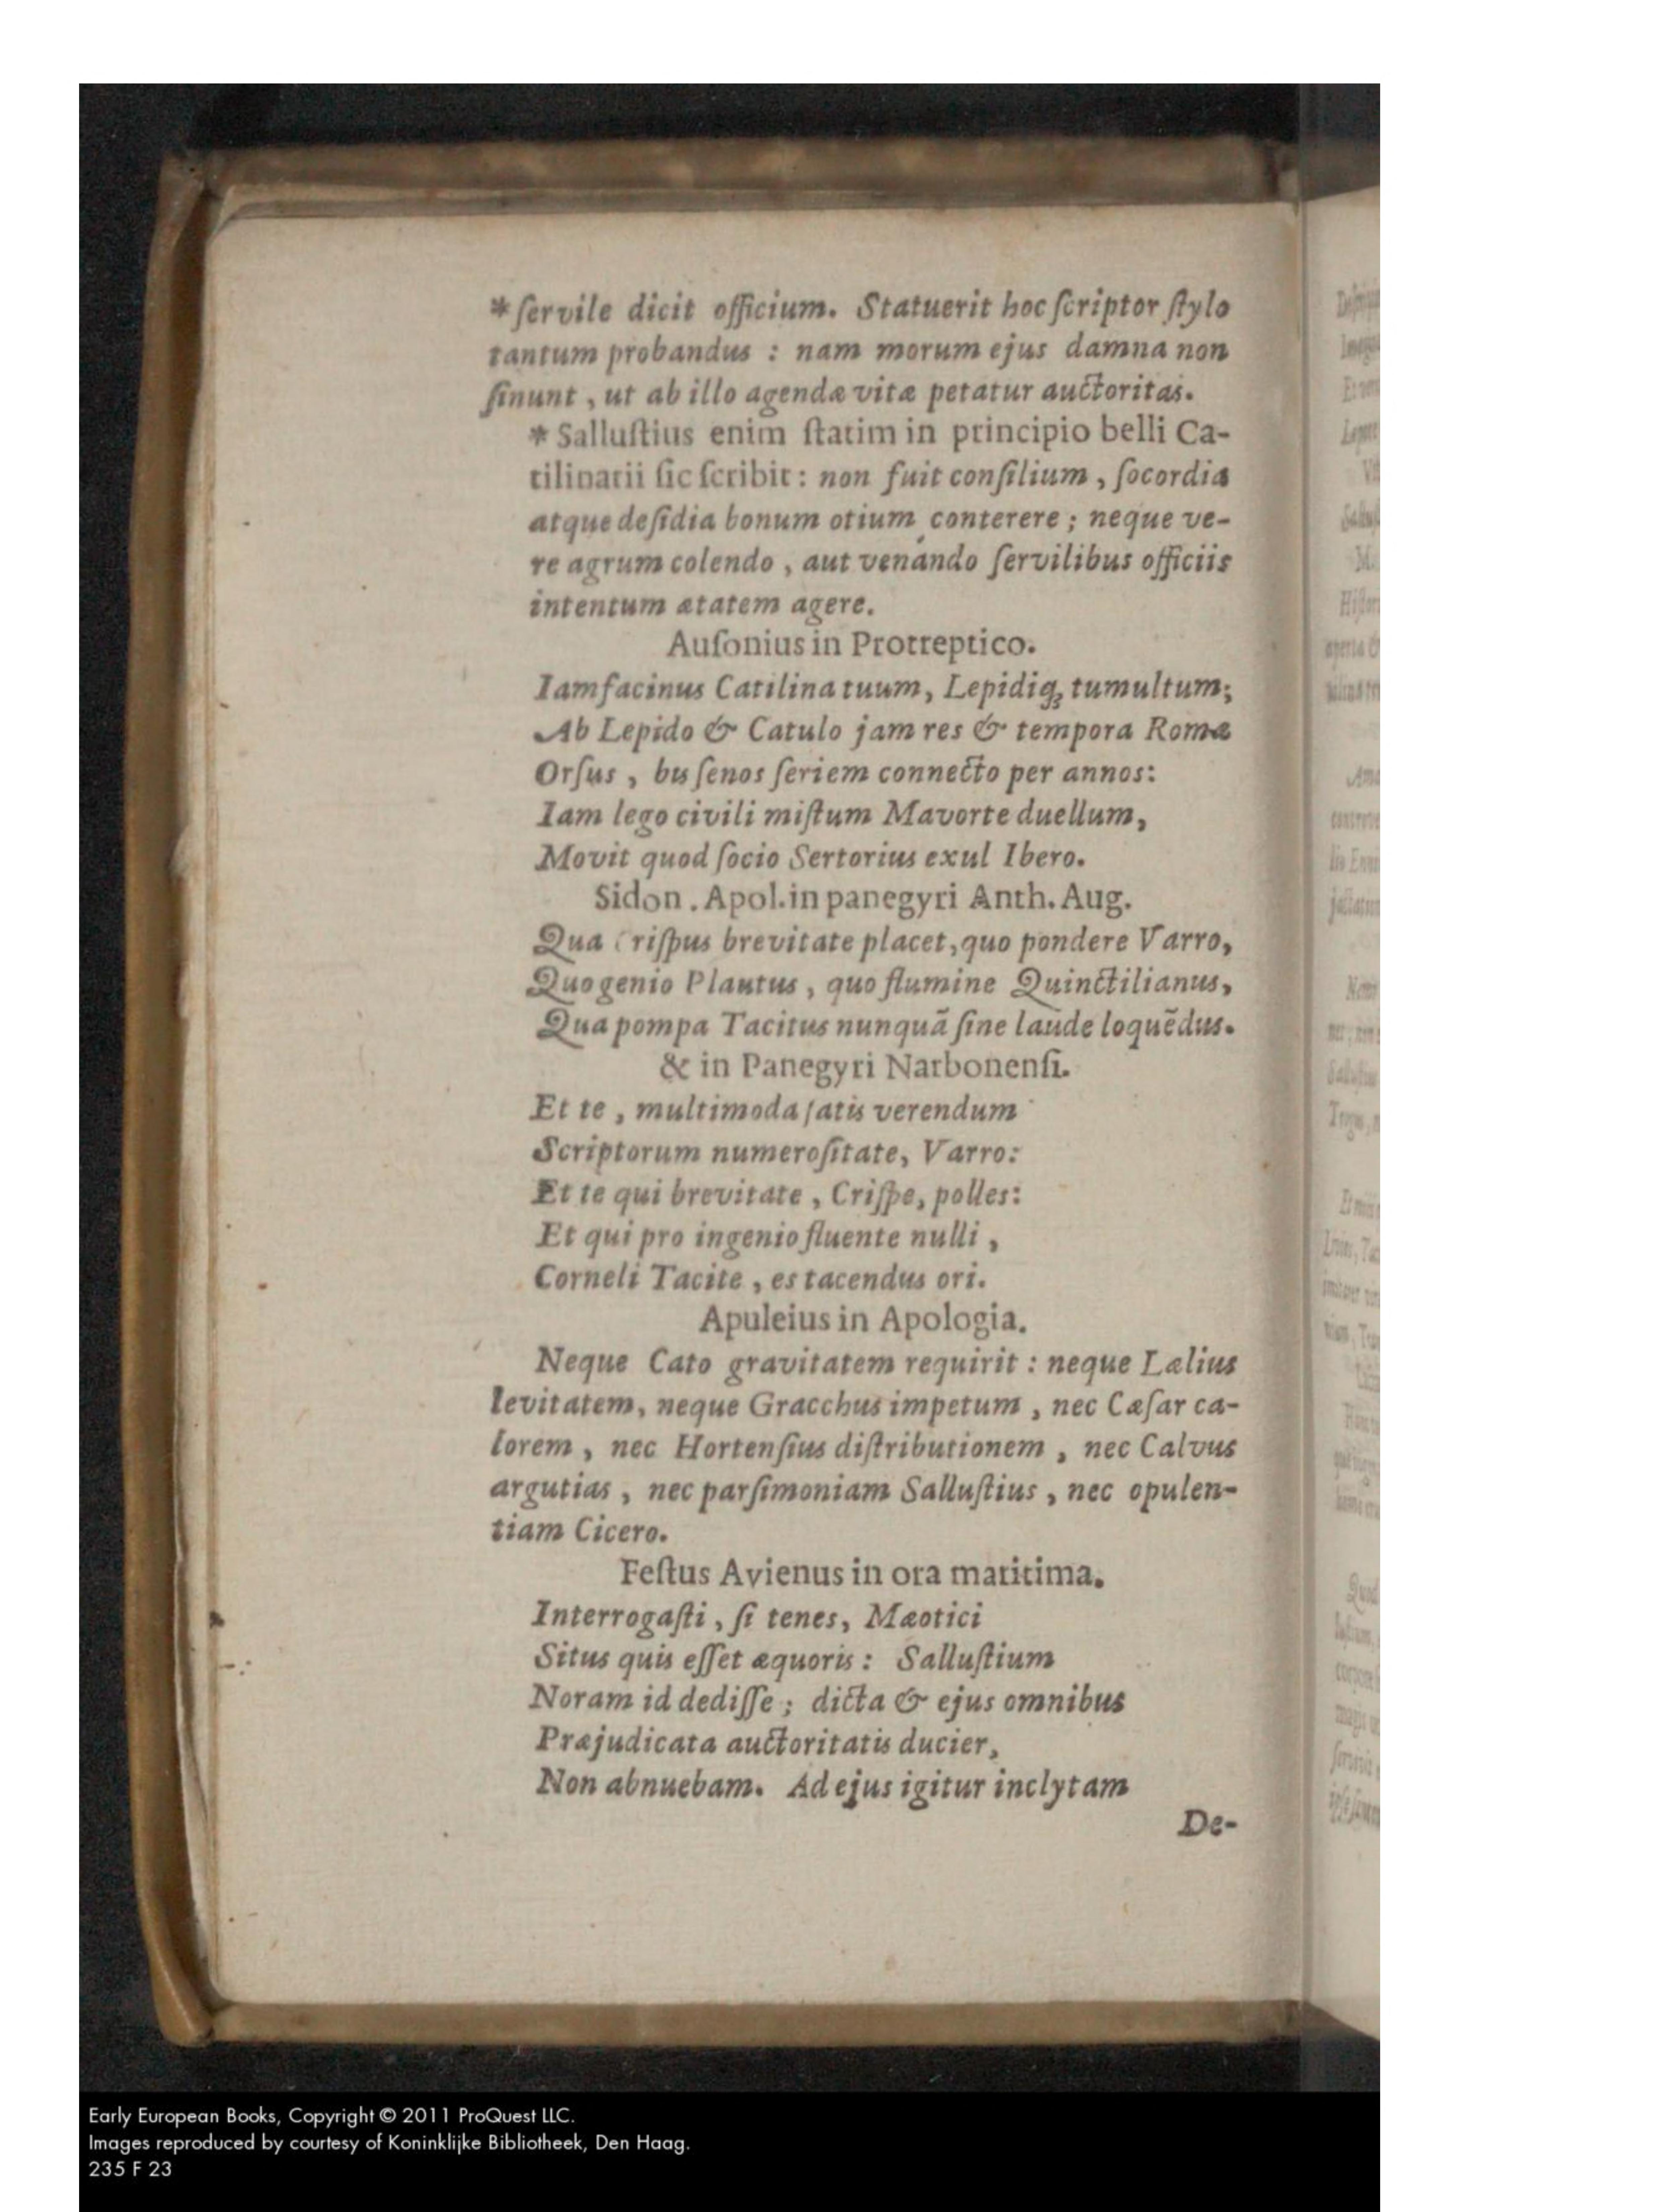 * ſervile dicit officium. Statuerit hoc ſcriptor ſtylo
tantum probandus : nam morum ejus damna non
ſinunt, ut ab illo agendæ vitæ petatur auctoritas.
* Salluſtius enim ſtatim in principio belli Ca-
tilinarii ſic ſcribit: non fuit conſilium, ſocordia
atque deſidia bonum otium conterere; neque ve-
re agrum colendo, aut venando ſervilibus officiis
intentum ætatem agere.
Auſonius in Protreptico.
Iam facinus Catilina tuum, Lepidiq; tumultum;
Ab Lepido & Catulo jam res & tempora Romæ
Orſus, bis ſenos ſeriem connecto per annos:
Iam lego civili miſtum Mavorte duellum,
Movit quod ſocio Sertorius exul Ibero.
Sidon. Apol. in panegyri Anth. Aug.
Qua Criſpus brevitate placet, quo pondere Varro,
Quo genio Plautus, quo flumine Quinctilianus,
Qua pompa Tacitus nunquã ſine laude loquẽdus.
& in Panegyri Narbonenſi.
Et te, multimoda ſatis verendum
Scriptorum numeroſitate, Varro:
Et te qui brevitate, Criſpe, polles:
Et qui pro ingenio fluente nulli,
Corneli Tacite, es tacendus ori.
Apuleius in Apologia.
Neque Cato gravitatem requirit : neque Lælius
levitatem, neque Gracchus impetum, nec Cæſar ca-
lorem, nec Hortenſius diſtributionem, nec Calvus
argutias, nec parſimoniam Salluſtius, nec opulen-
tiam Cicero.
Feſtus Avienus in ora maritima.
Interrogaſti, ſi tenes, Mæotici
Situs quis eſſet æquoris: Salluſtium
Noram id dediſſe; dicta & ejus omnibus
Præjudicata auctoritatis ducier,
Non abnuebam. Ad ejus igitur inclytam
De-
Early European Books, Copyright © 2011 ProQuest LLC.
Images reproduced by courtesy of Koninklijke Bibliotheek, Den Haag.
235 F 23